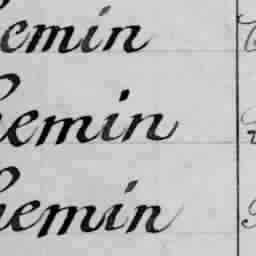 hemin
hemin
hemin